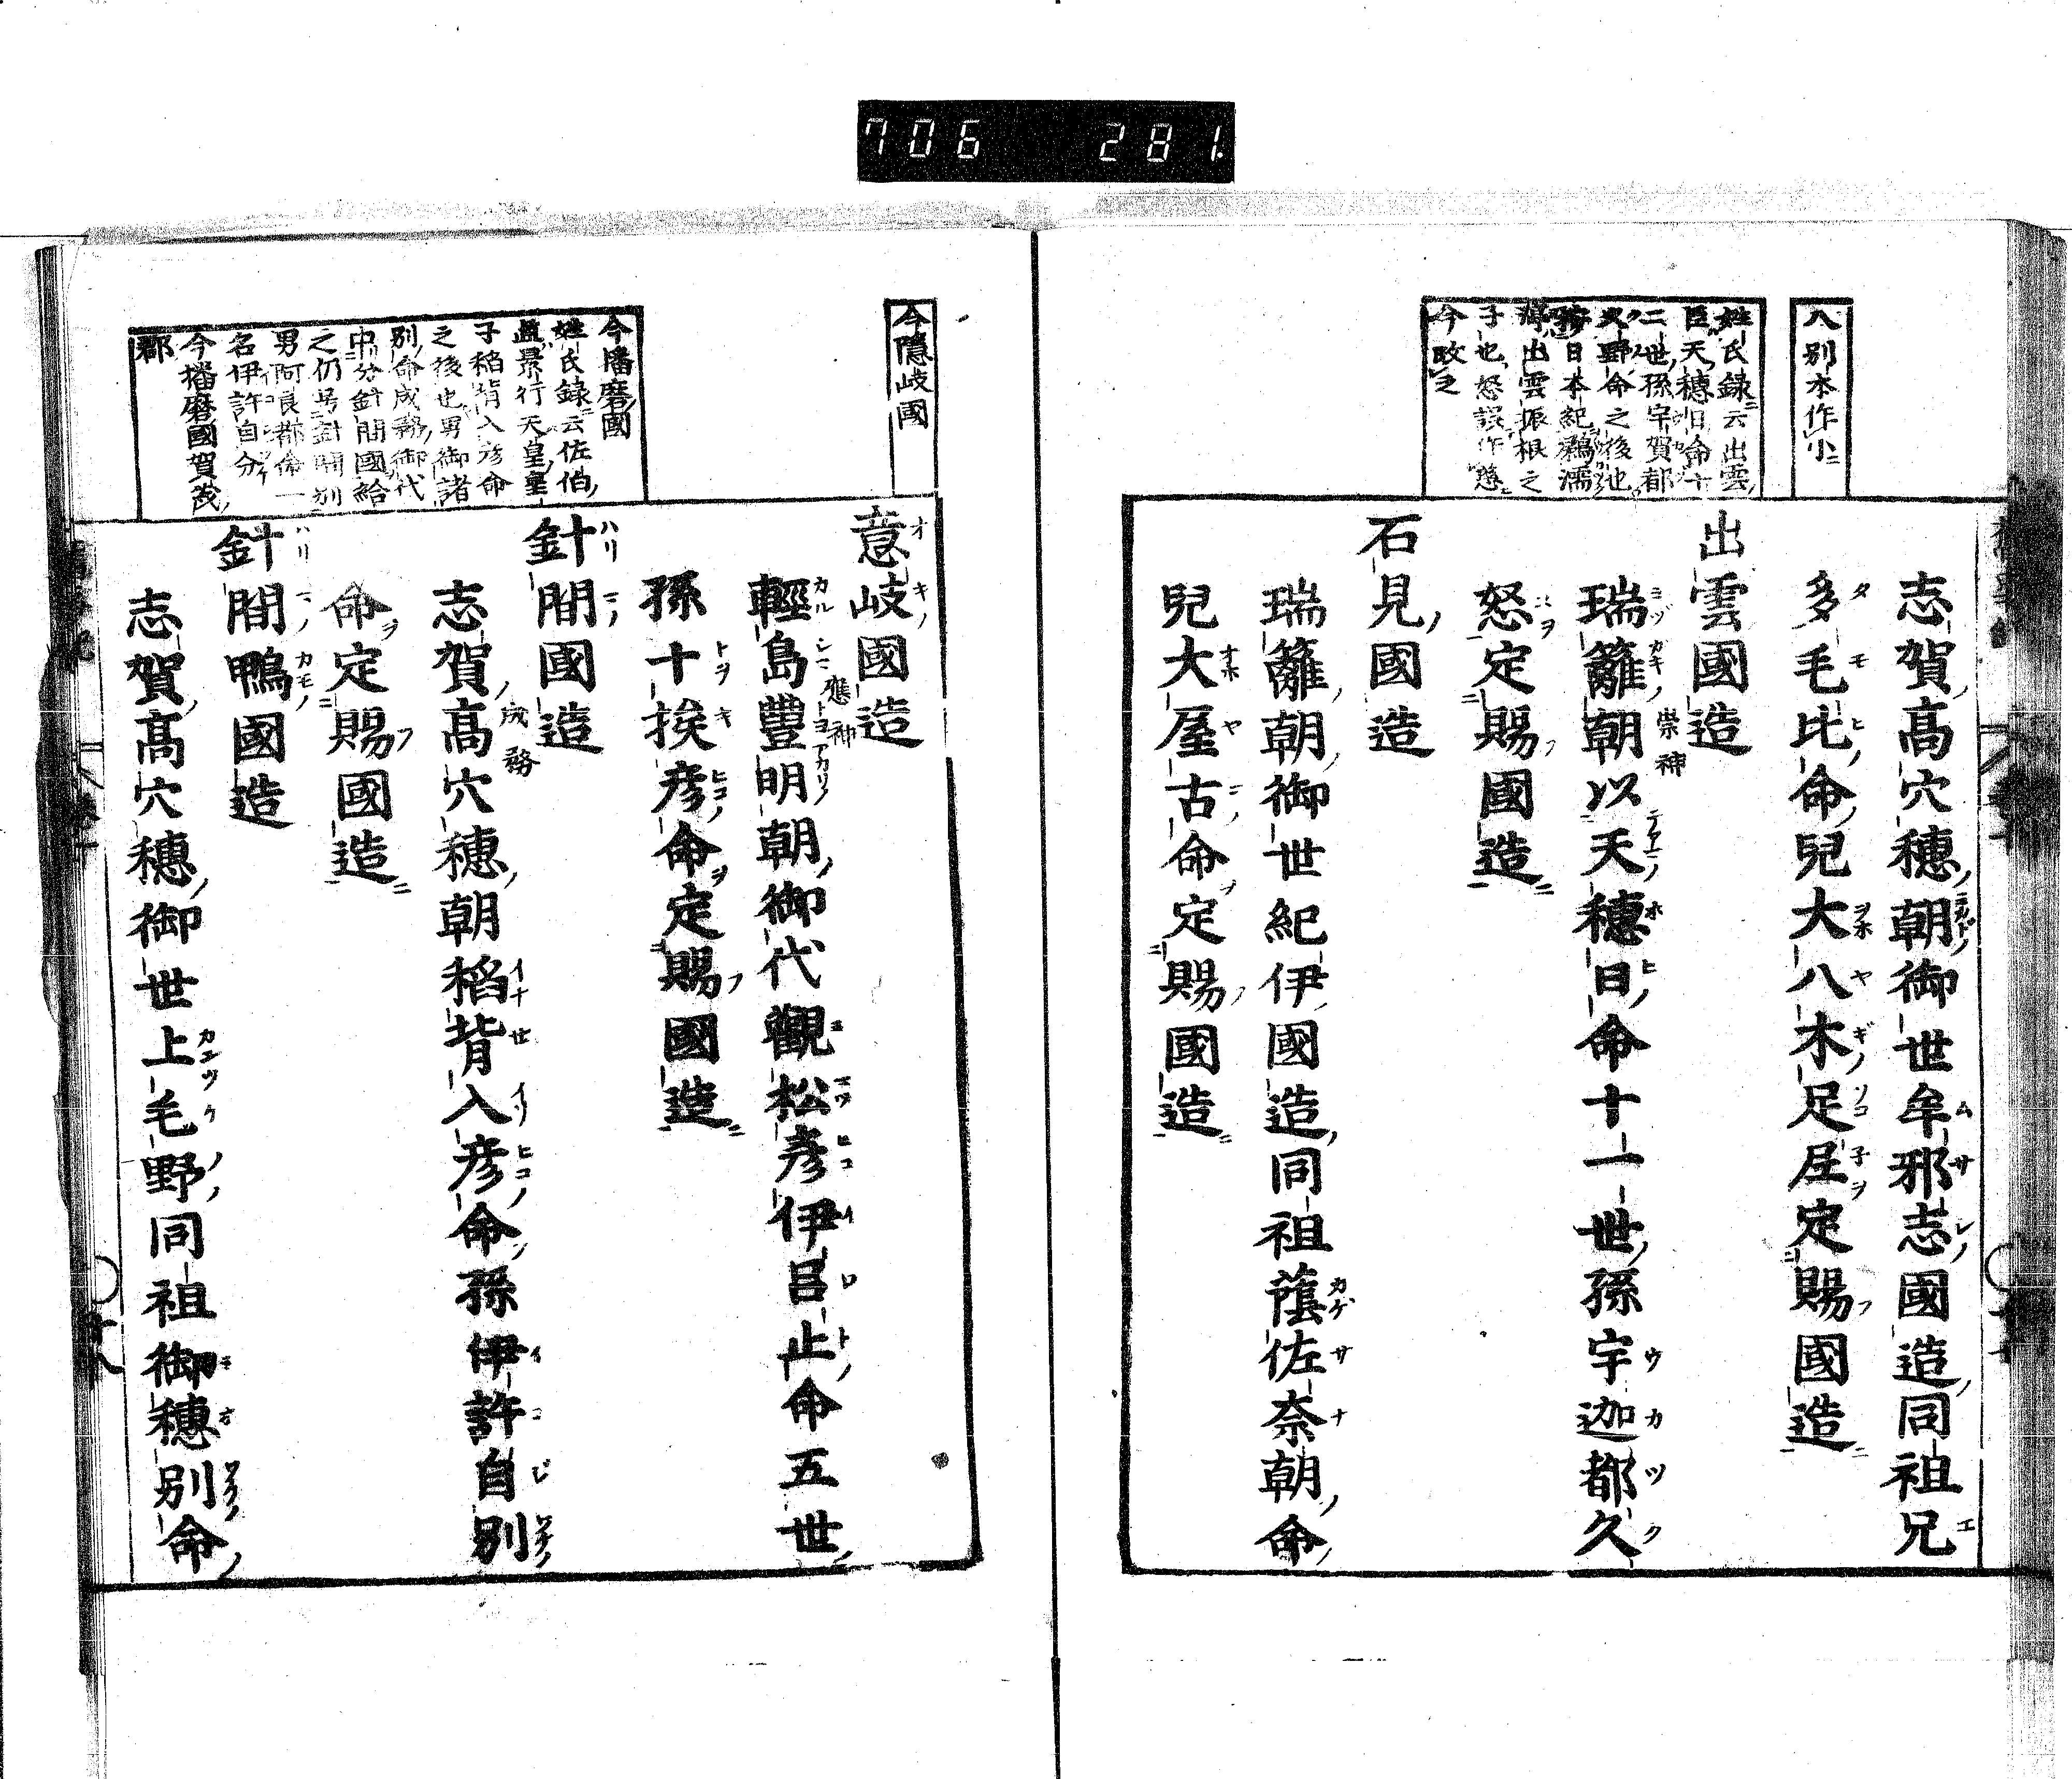 706 281.
八別本作小ニ
姓氏録ニ云出雲
臣天穗日命十
二世孫宇賀都
久野命之後也
按日本紀鸕濡
渟出雲振根之
子也怒誤作慈
今改之
志賀高穴穗朝御世牟邪志國造同祖兄
多毛比命兒大八木足尼定賜國造
出雲國造
瑞籬朝以天穗日命十一世孫宇迦都久
崇神
怒定賜國造
石見國造
瑞籬朝御世紀伊國造同祖蔭佐奈朝命
兒大屋古命定賜國造
今隱岐國
今播磨國
姓氏録ニ云佐伯
直景行天皇皇
子稻背入彦命
之後也男御諸
別命成務御代
中分針間國給
之仍号針間別
男阿良都命一
名伊許自分
今播磨國賀茂
郡
意岐國造
輕島豐明朝御代觀松彦伊呂止命五世
應神
孫十挨彦命定賜國造
針間國造
志賀高穴穗朝稻背入彦命孫伊許自別
成務
命定賜國造
針間鴨國造
志賀高穴穗御世上毛野同祖御穗別命